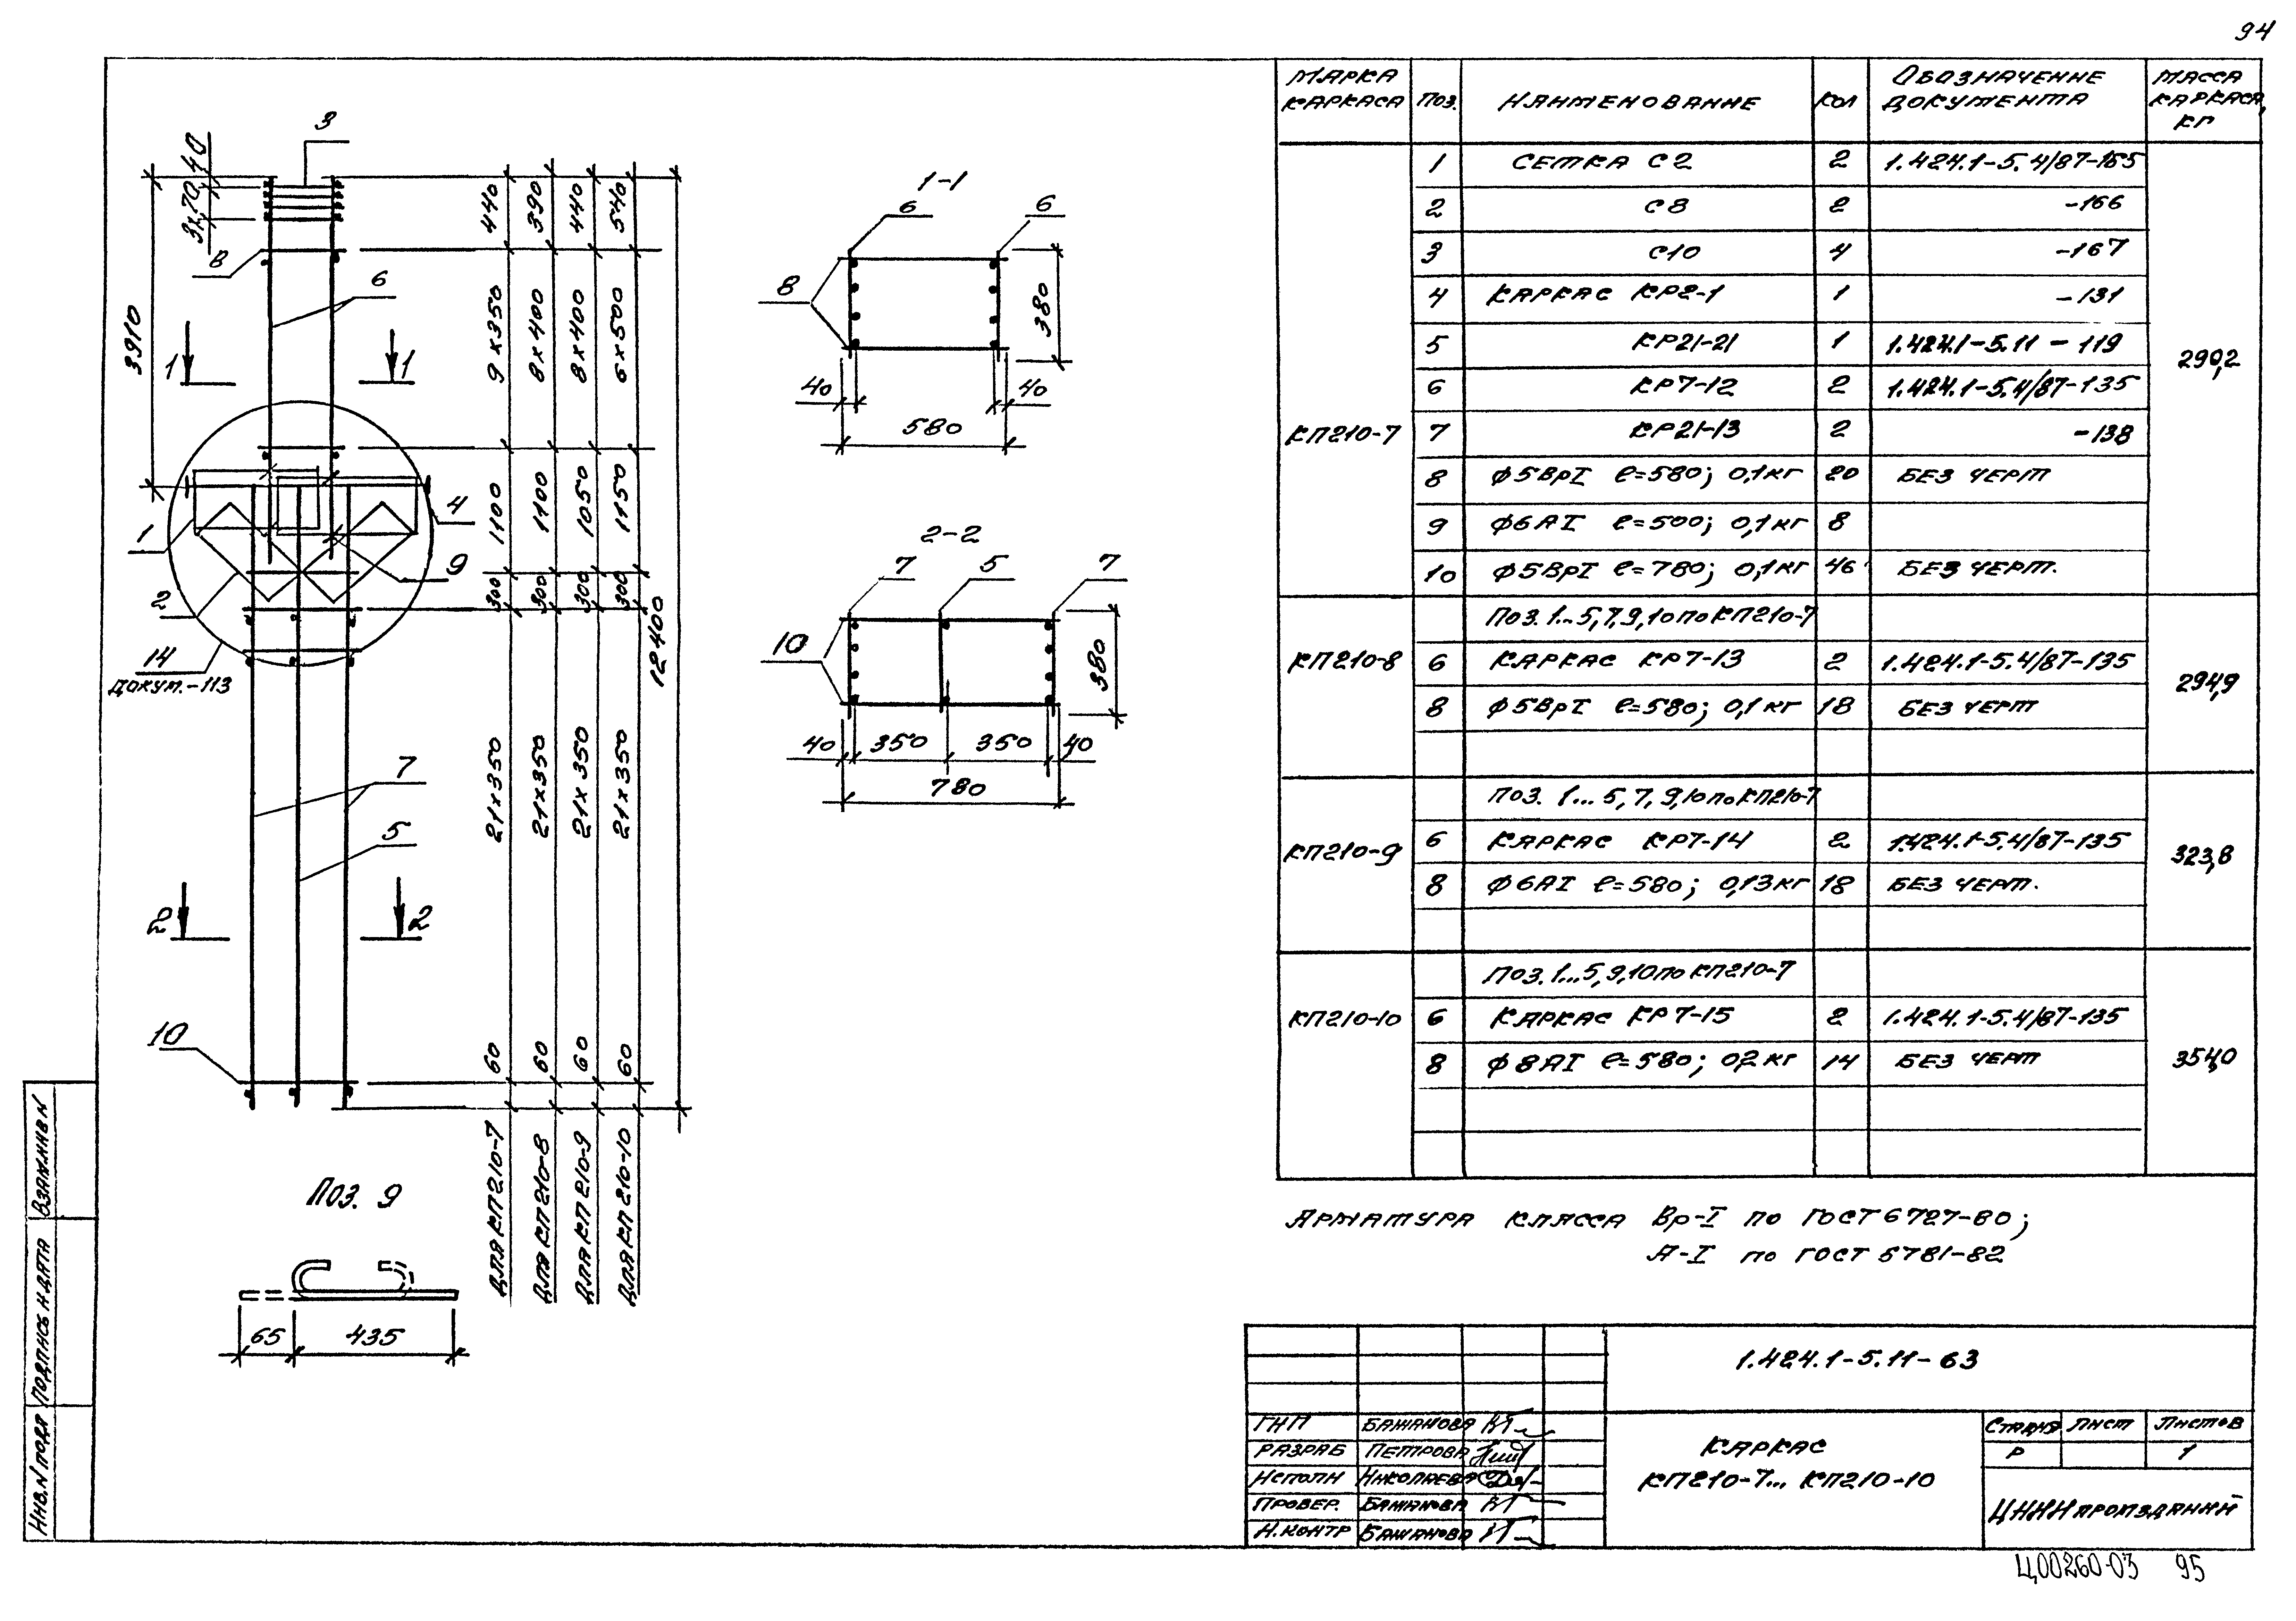 94
3
40
3х70
В
6
3910
1 1
4
1
9
2
14
докум.-113
7
5
2 2
10
440 390 440 540
9х350 8х400 8х400 6х500
1100 1100 1050 1150
300 300 300 300
12400
21х350 21х350 21х350 21х350
60 60 60 60
для КП210-7
для КП210-8
для КП210-9
для КП210-10
1-1
6 6
8
380
40 40
580
2-2
7 5 7
10
380
40 350 350 40
780
Поз. 9
65 435
Марка каркаса Поз. Наименование Кол Обозначение документа Масса каркаса, кг
КП210-7 290,2
1 Сетка С2 2 1.424.1-5.4/87-165
2 С8 2 -166
3 С10 4 -167
4 Каркас КР2-1 1 -131
5 КР21-21 1 1.424.1-5.11-119
6 КР7-12 2 1.424.1-5.4/87-135
7 КР21-13 2 -138
8 ϕ5ВрI ℓ=580; 0,1кг 20 Без черт
9 ϕ6АI ℓ=500; 0,1кг 8
10 ϕ5ВрI ℓ=780; 0,1кг 46 Без черт.
КП210-8 294,9
Поз. 1...5,7,9,10 по КП210-7
6 Каркас КР7-13 2 1.424.1-5.4/87-135
8 ϕ5ВрI ℓ=580; 0,1кг 18 Без черт
КП210-9 323,8
Поз. 1...5,7,9,10 по КП210-7
6 Каркас КР7-14 2 1.424.1-5.4/87-135
8 ϕ6АI ℓ=580; 0,13кг 18 Без черт.
КП210-10 354,0
Поз. 1...5,9,10 по КП210-7
6 Каркас КР7-15 2 1.424.1-5.4/87-135
8 ϕ8АI ℓ=580; 0,2кг 14 Без черт
Арматура класса Вр-I по ГОСТ 6727-80;
А-I по ГОСТ 5781-82
1.424.1-5.11-63
ГИП Бажанова
Разраб Петрова
Исполн Николаева
Провер. Бажанова
Н.контр Бажанова
Каркас
КП210-7... КП210-10
Стадия Лист Листов
Р 1
ЦНИИпромзданий
Взам.инв N
Подпись и дата
Инв.N подл
Ц00260-03 95